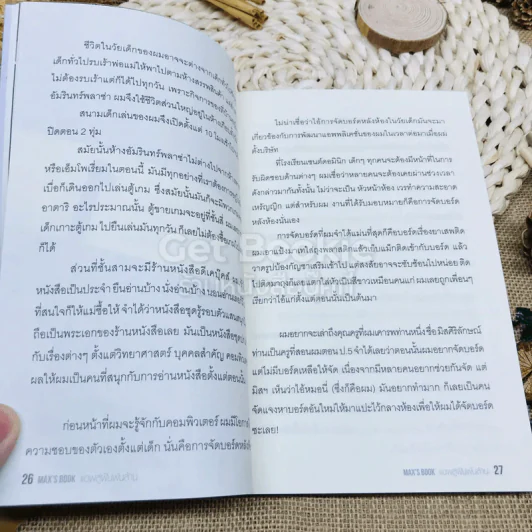 ชีวิตในวัยเด็กของผมอาจจะต่างจากเด็ก
เด็กทั่วไปรบเร้าพ่อแม่ให้พาไปตามห้างสรรพสินค้า
ไม่ต้องรบเร้าแต่ก็ได้ไปทุกวัน เพราะกิจการของ
อัมรินทร์พลาซ่า ผมจึงใช้ชีวิตส่วนใหญ่อยู่ในห้าง
สนามเด็กเล่นของผมจึงเปิดตั้งแต่ 10 โมงเช้า
ปิดตอน 2 ทุ่ม
สมัยนั้นห้างอัมรินทร์พลาซ่าไม่ต่างไปจาก
หรือเอ็มโพเรี่ยมในตอนนี้ มันมีทุกอย่างที่เราต้องการ
เบื่อก็เดินออกไปเล่นตู้เกม ซึ่งสมัยนั้นมันก็จะมี
อาตาริ อะไรประมาณนั้น ตู้ขายเกมจะอยู่ที่ชั้นสี่
เด็กเกาะตู้เกม ไปยืนเล่นมันทุกวัน ก็เลยไม่ต้องซื้อ
ก็ได้
ส่วนที่ชั้นสามจะมีร้านหนังสือดีเคบุ๊คส์
หนังสือเป็นประจำ ยืนอ่านบ้าง นั่งอ่านบ้าง นอนอ่าน
ที่สนใจก็ให้แม่ซื้อให้ จำได้ว่าหนังสือชุดรู้รอบตัว
ถือเป็นพระเอกของร้านหนังสือเลย มันเป็นหนังสือชุด
กับเรื่องต่างๆ ตั้งแต่วิทยาศาสตร์ บุคคลสำคัญ
ผลให้ผมเป็นคนที่สนุกกับการอ่านหนังสือตั้งแต่ตอนนั้น
ก่อนหน้าที่ผมจะรู้จักกับคอมพิวเตอร์ ผมมีโอกาส
ความชอบของตัวเองตั้งแต่เด็ก นั่นคือการจัดบอร์ดหลัง
26 MAX'S BOOK
ไม่น่าเชื่อว่าไอ้การจัดบอร์ดหลังห้องในวัยเด็กมันจะมา
เกี่ยวข้องกับการพัฒนาแอพพลิเคชั่นของผมในเวลาต่อมาเมื่อผม
ตั้งบริษัท
ที่โรงเรียนเซนต์ดอมินิก เด็กๆ ทุกคนจะต้องมีหน้าที่ในการ
รับผิดชอบด้านต่างๆ ผมเชื่อว่าหลายคนจะต้องเคยผ่านช่วงเวลา
ดังกล่าวมากันทั้งนั้น ไม่ว่าจะเป็น หัวหน้าห้อง เวรทำความสะอาด
เหรัญญิก แต่สำหรับผม งานที่ได้รับมอบหมายก็คือการจัดบอร์ด
หลังห้องนั่นเอง
การจัดบอร์ดที่ผมจำได้แม่นที่สุดก็คือบอร์ดเรื่องยาเสพติด
ผมเอาแป้งมาเทใส่ถุงพลาสติกแล้วเก็บแม็กติดเข้ากับบอร์ด แล้ว
วาดรูปบ้องกัญชาเสริมเข้าไป
เรียกว่าไอ้แก๊งตั้งแต่ตอนนั้นเป็นต้นมา
ผมอยากจะเล่าถึงคุณครูที่ผมเคารพท่านหนึ่ง ชื่อ มิสศิริลักษณ์
ท่านเป็นครูที่สอนผมตอน ป.5 จำได้เลยว่าตอนนั้นผมอยากจัดบอร์ด
แต่ไม่มีบอร์ดเหลือให้จัด เนื่องจากมีหลายคนอยากช่วยกันจัด แต่
มิสฯ เห็นว่าไอ้หมอนี่ (ซึ่งก็คือผม) มันอยากทำมาก ก็เลยเป็นคน
จัดแจงหาบอร์ดอันใหม่ให้มาแปะไว้กลางห้องเพื่อให้ผมได้จัดบอร์ด
ซะเลย!
MAX'S BOOK 27